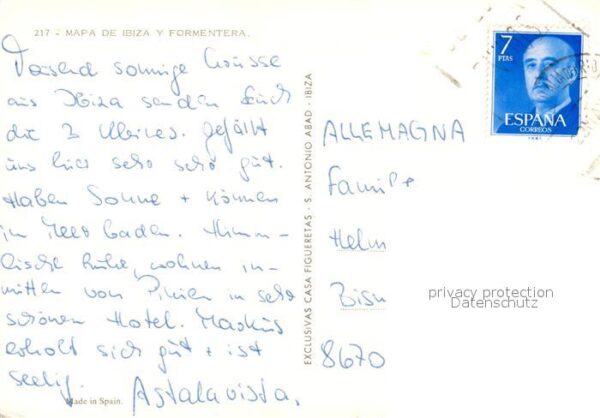 217 - MAPA DE IBIZA Y FORMENTERA.
Tausend sonnige Grüsse
aus Ibiza senden Euch
die 3 gefällt
uns hier sehr sehr gut.
Haben Sonne + können
im Meer baden. Himm-
lische Ruhe, wohnen in-
mitten von Pinien in sehr
schönen Hotel. Markus
erholt sich gut + ist
seelig. Astalavista,
Made in Spain.
EXCLUSIVAS CASA FIGUERETAS - S. ANTONIO ABAD - IBIZA
7
PTAS
ESPAÑA
CORREOS
ALLEMAGNA
Familie
Helm
8670
privacy protection
Datenschutz